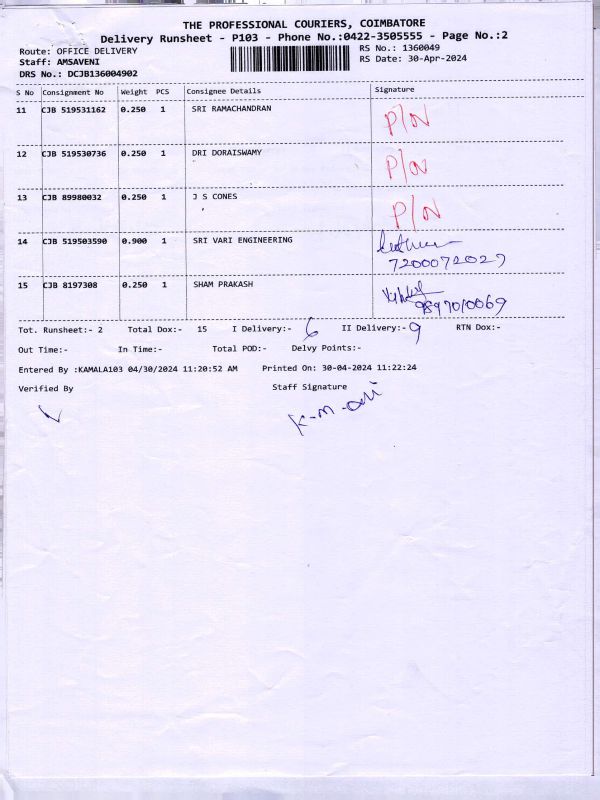 THE PROFESSIONAL COURIERS, COIMBATORE
Delivery Runsheet - P103 - Phone No.:0422-3505555 - Page No.:2
Route: OFFICE DELIVERY RS No.: 1360049
Staff: AMSAVENI RS Date: 30-Apr-2024
DRS No.: DCJB136004902
S No Consignment No Weight PCS Consignee Details Signature
11 CJB 519531162 0.250 1 SRI RAMACHANDRAN P/N
12 CJB 519530736 0.250 1 DRI DORAISWAMY P/N
13 CJB 89980032 0.250 1 J S CONES P/N
14 CJB 519503590 0.900 1 SRI VARI ENGINEERING
7200072027
15 CJB 8197308 0.250 1 SHAM PRAKASH
9897010069
Tot. Runsheet:- 2 Total Dox:- 15 I Delivery:- 6 II Delivery:- 9 RTN Dox:-
Out Time:- In Time:- Total POD:- Delvy Points:-
Entered By :KAMALA103 04/30/2024 11:20:52 AM Printed On: 30-04-2024 11:22:24
Verified By Staff Signature